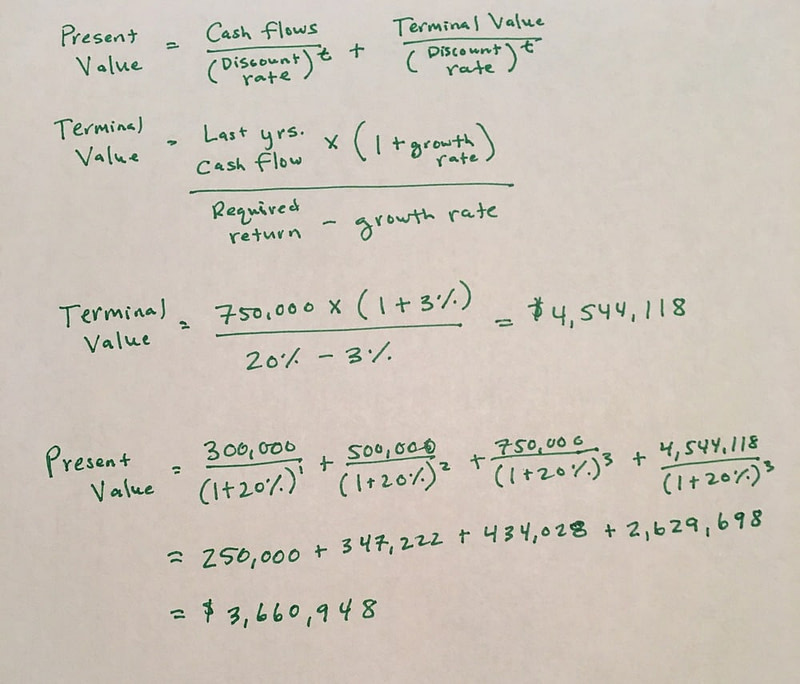 Present Value = Cash flows / (Discount rate)^t + Terminal Value / (Discount rate)^t
Terminal Value = Last yrs. Cash flow x (1 + growth rate) / Required return - growth rate
Terminal Value = 750,000 x (1 + 3%) / 20% - 3% = $4,544,118
Present Value = 300,000 / (1+20%)^1 + 500,000 / (1+20%)^2 + 750,000 / (1+20%)^3 + 4,544,118 / (1+20%)^3
= 250,000 + 347,222 + 434,028 + 2,629,698
= $3,660,948